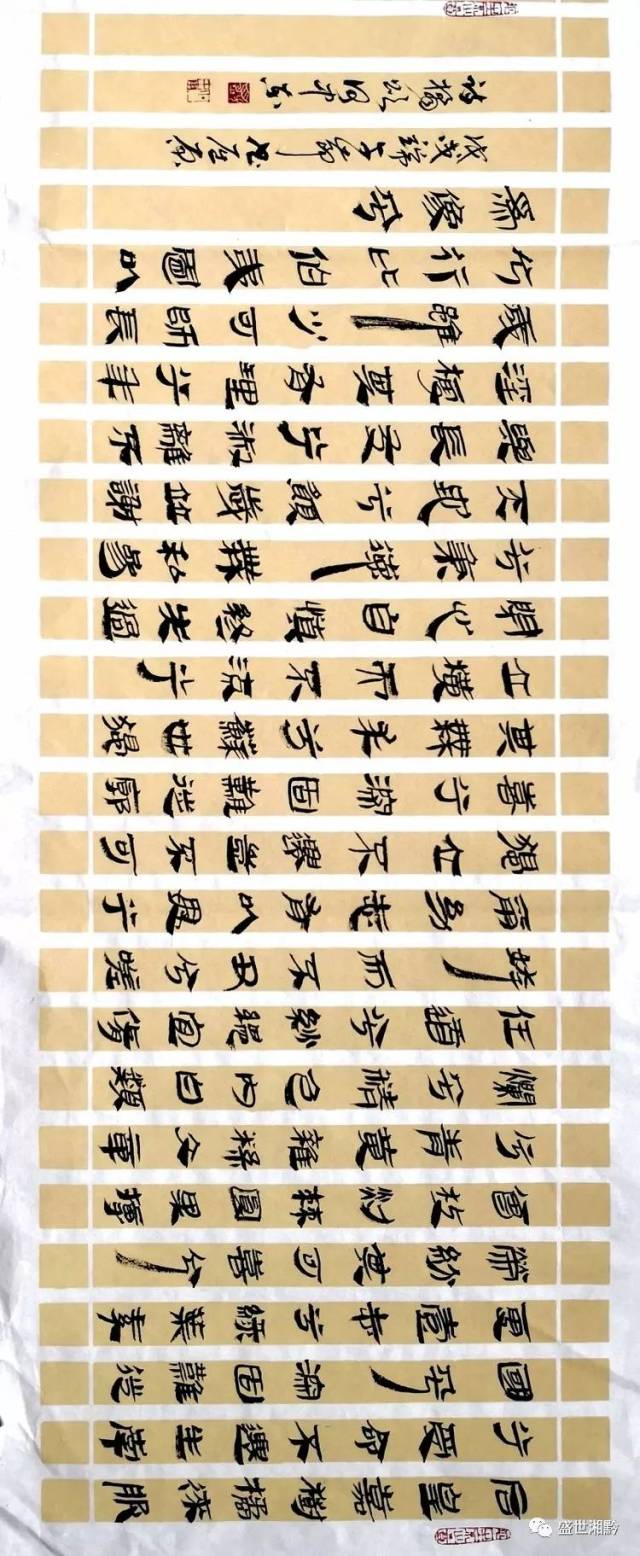 后皇嘉樹橘徠服
兮受命不遷生南
國兮深固難徙
更壹志兮綠葉素
榮紛其可喜兮
曾枝剡棘圓果摶
兮青黃雜糅文章
爛兮精色內白類
任道兮紛縕宜脩
姱而不丑兮嗟
爾幼志有以異兮
獨立不遷豈不可
喜兮深固難徙廓
其無求兮蘇世獨
立橫而不流兮
閉心自慎終失過
兮秉德無私參
天地兮願歲並謝
與長友兮淑離不
淫梗其有理兮年
歲雖少可師長
兮行比伯夷置以
爲像兮
戊戌端午節書屈原
詩橘頌
盛世湘黔